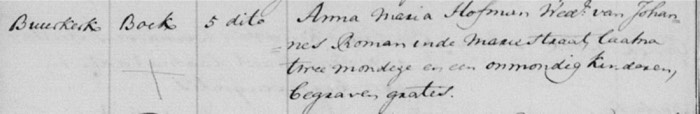 Buurkerk Boek 5 dito Anna Maria Hofman Wede. van Johan-
nes Roman inde Mariestraat, laatna
twee mondege en een onmondig kinderen,
begraven gratis.